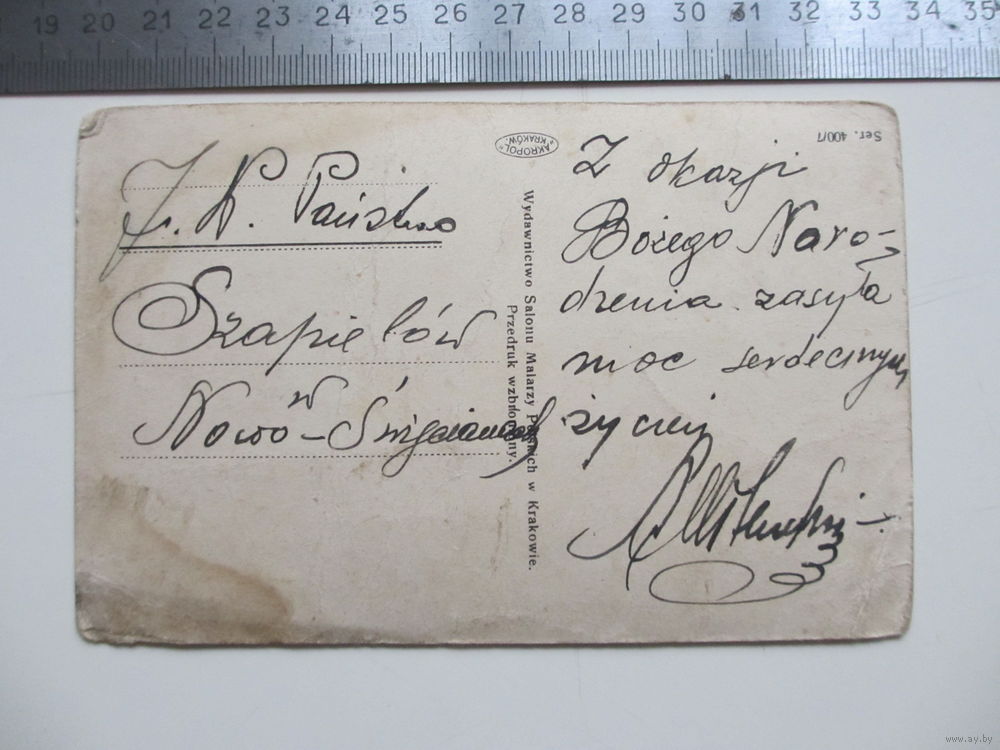 19 20 21 22 23 24 25 26 27 28 29 30 31 32 33 34 35
J. W. Państwo
Szapielów
w
Nowo-Święcianach
AKROPOL
KRAKÓW.
Wydawnictwo Salonu Malarzy Polskich w Krakowie.
Przedruk wzbroniony.
Ser. 400/1
Z okazji
Bożego Naro-
dzenia zasyła
moc serdecznych
życzeń
www.ay.by